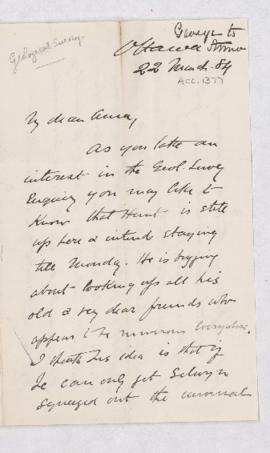 Geological Survey
George to
Anna
Ottawa
22 March. 84
ACC. 1377
My dear Anna,
As you take an
interest in the Geol. Survey
Enquiry you may like to
know that Hunt is still
up here & intends staying
till Monday. He is buzzing
about looking up all his
old & very dear friends who
appears to be numerous everywhere.
I think his idea is that if
he can only get Selwyn
squeezed out the universal